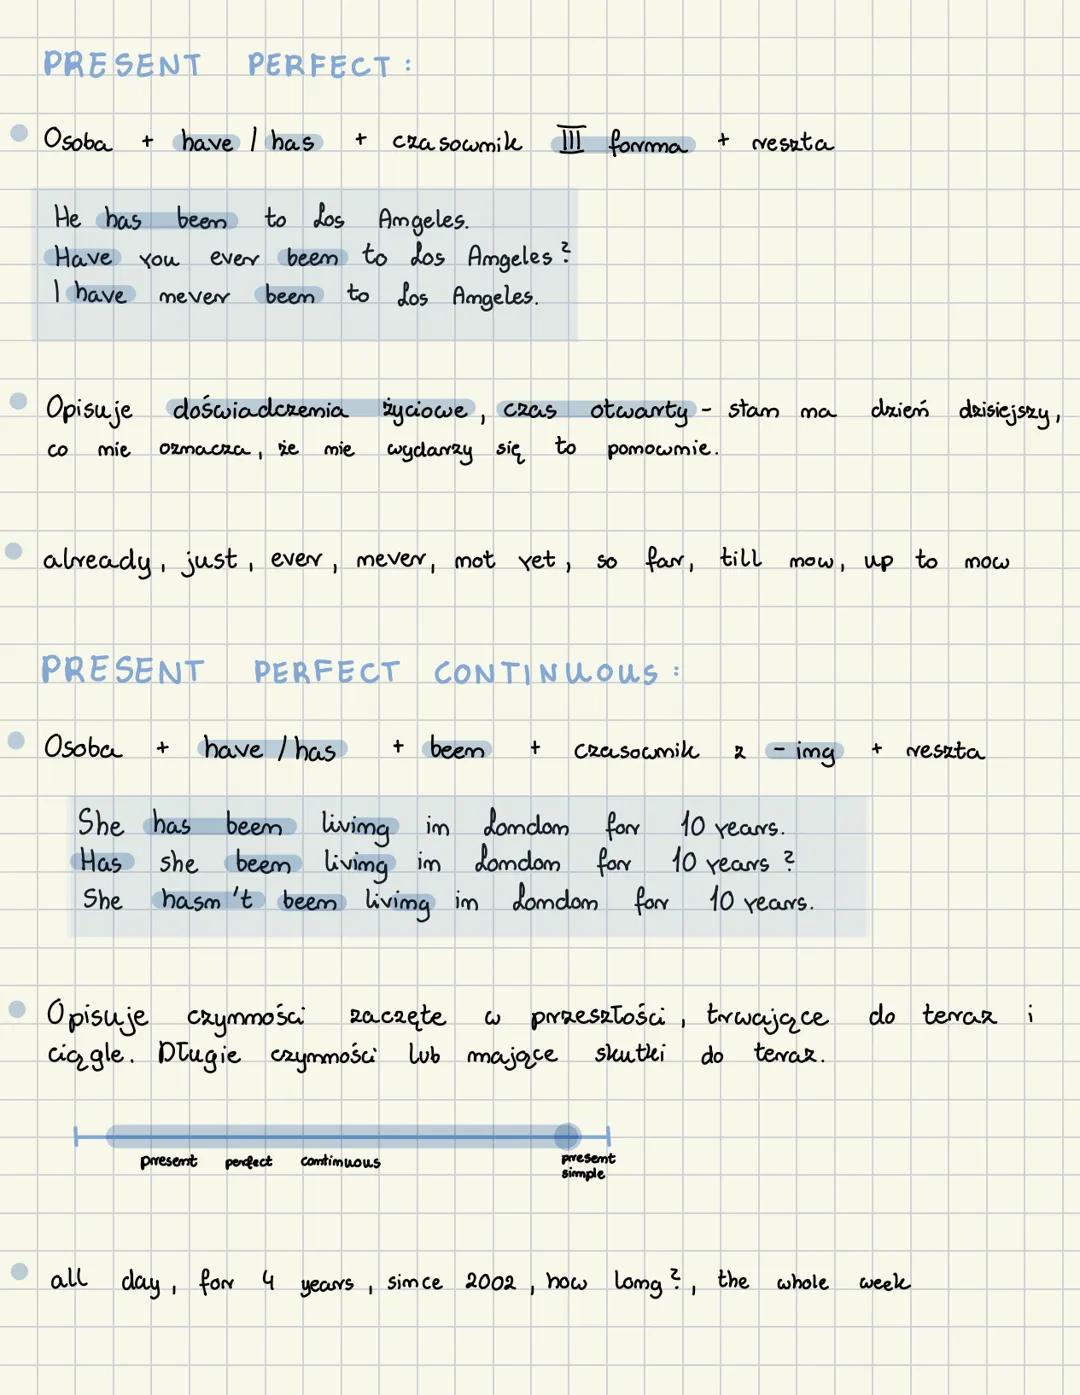 PRESENT PERFECT:
Osoba + have / has + czasownik III forma + reszta
He has been to Los Angeles.
Have you ever been to Los Angeles?
I have never been to Los Angeles.
Opisuje doświadczenia życiowe, czas otwarty - stan na dzień dzisiejszy,
co nie oznacza, że nie wydarzy się to ponownie.
already, just, ever, never, not yet, so far, till now, up to now
PRESENT PERFECT CONTINUOUS:
Osoba + have / has + been + czasownik z -ing + reszta
She has been living in London for 10 years.
Has she been living in London for 10 years?
She hasn't been living in London for 10 years.
Opisuje czynności zaczęte w przeszłości, trwające do teraz i
ciągle. Długie czynności lub mające skutki do teraz.
present perfect continuous present
simple
all day, for 4 years, since 2002, how long?, the whole week